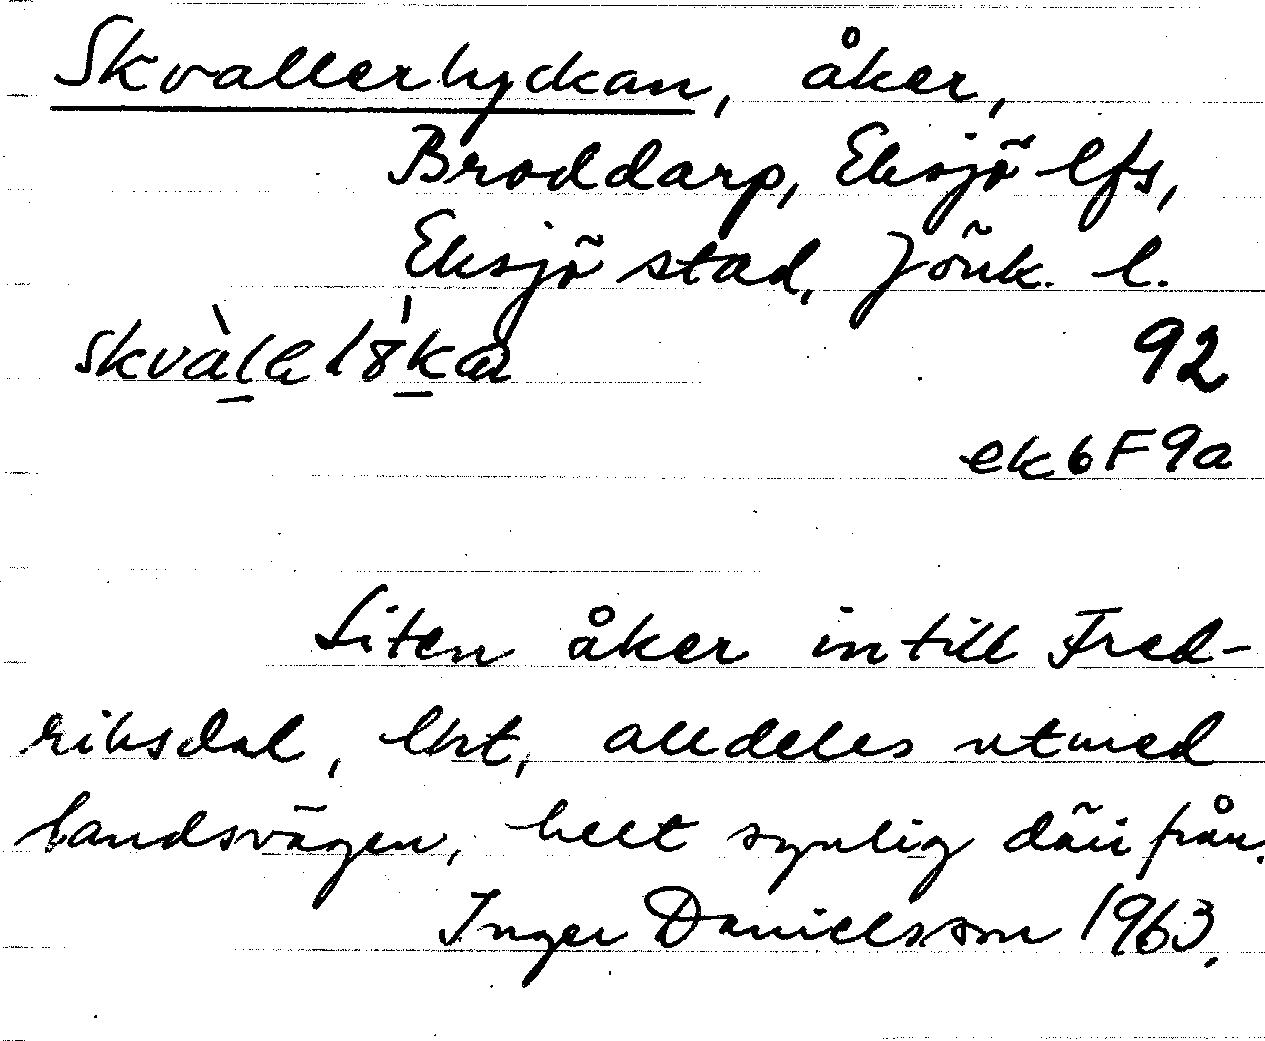 Skvallerlyckan, åker,
Broddarp, Eksjö lfs,
Eksjö stad, Jönk. l.
92
ek6F9a
Liten åker intill Fred-
riksdal, lht, alldeles utmed
landsvägen, helt synlig därifrån.
Inger Danielsson 1963.